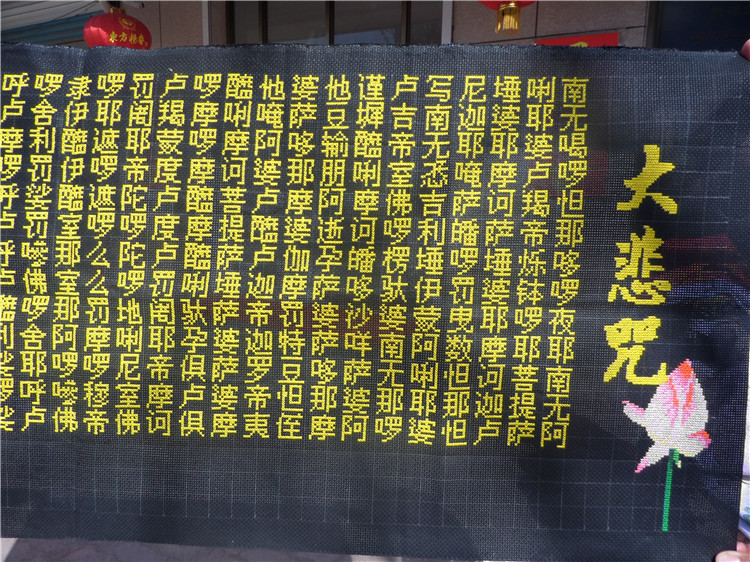 大悲咒
南无喝啰怛那哆啰夜耶南无阿
唎耶婆卢羯帝烁钵啰耶菩提萨
埵婆耶摩诃萨埵婆耶摩诃迦卢
尼迦耶唵萨皤啰罚曳数怛那怛
写南无悉吉利埵伊蒙阿唎耶婆
卢吉帝室佛啰楞驮婆南无那啰
谨墀醯唎摩诃皤哆沙咩萨婆阿
他豆输朋阿逝孕萨婆萨哆那摩
婆萨哆那摩婆伽摩罚特豆怛侄
他唵阿婆卢醯卢迦帝迦罗帝夷
醯唎摩诃菩提萨埵萨婆萨婆摩
啰摩啰摩摩醯醯唎驮孕俱卢俱
卢羯蒙度卢度卢罚阇耶帝摩诃
罚阇耶帝陀啰陀啰地唎尼室佛
啰耶遮啰遮啰么么罚摩啰穆帝
隶伊醯伊醯室那室那阿啰嘇佛
啰舍利罚娑罚嘇佛啰舍耶呼卢